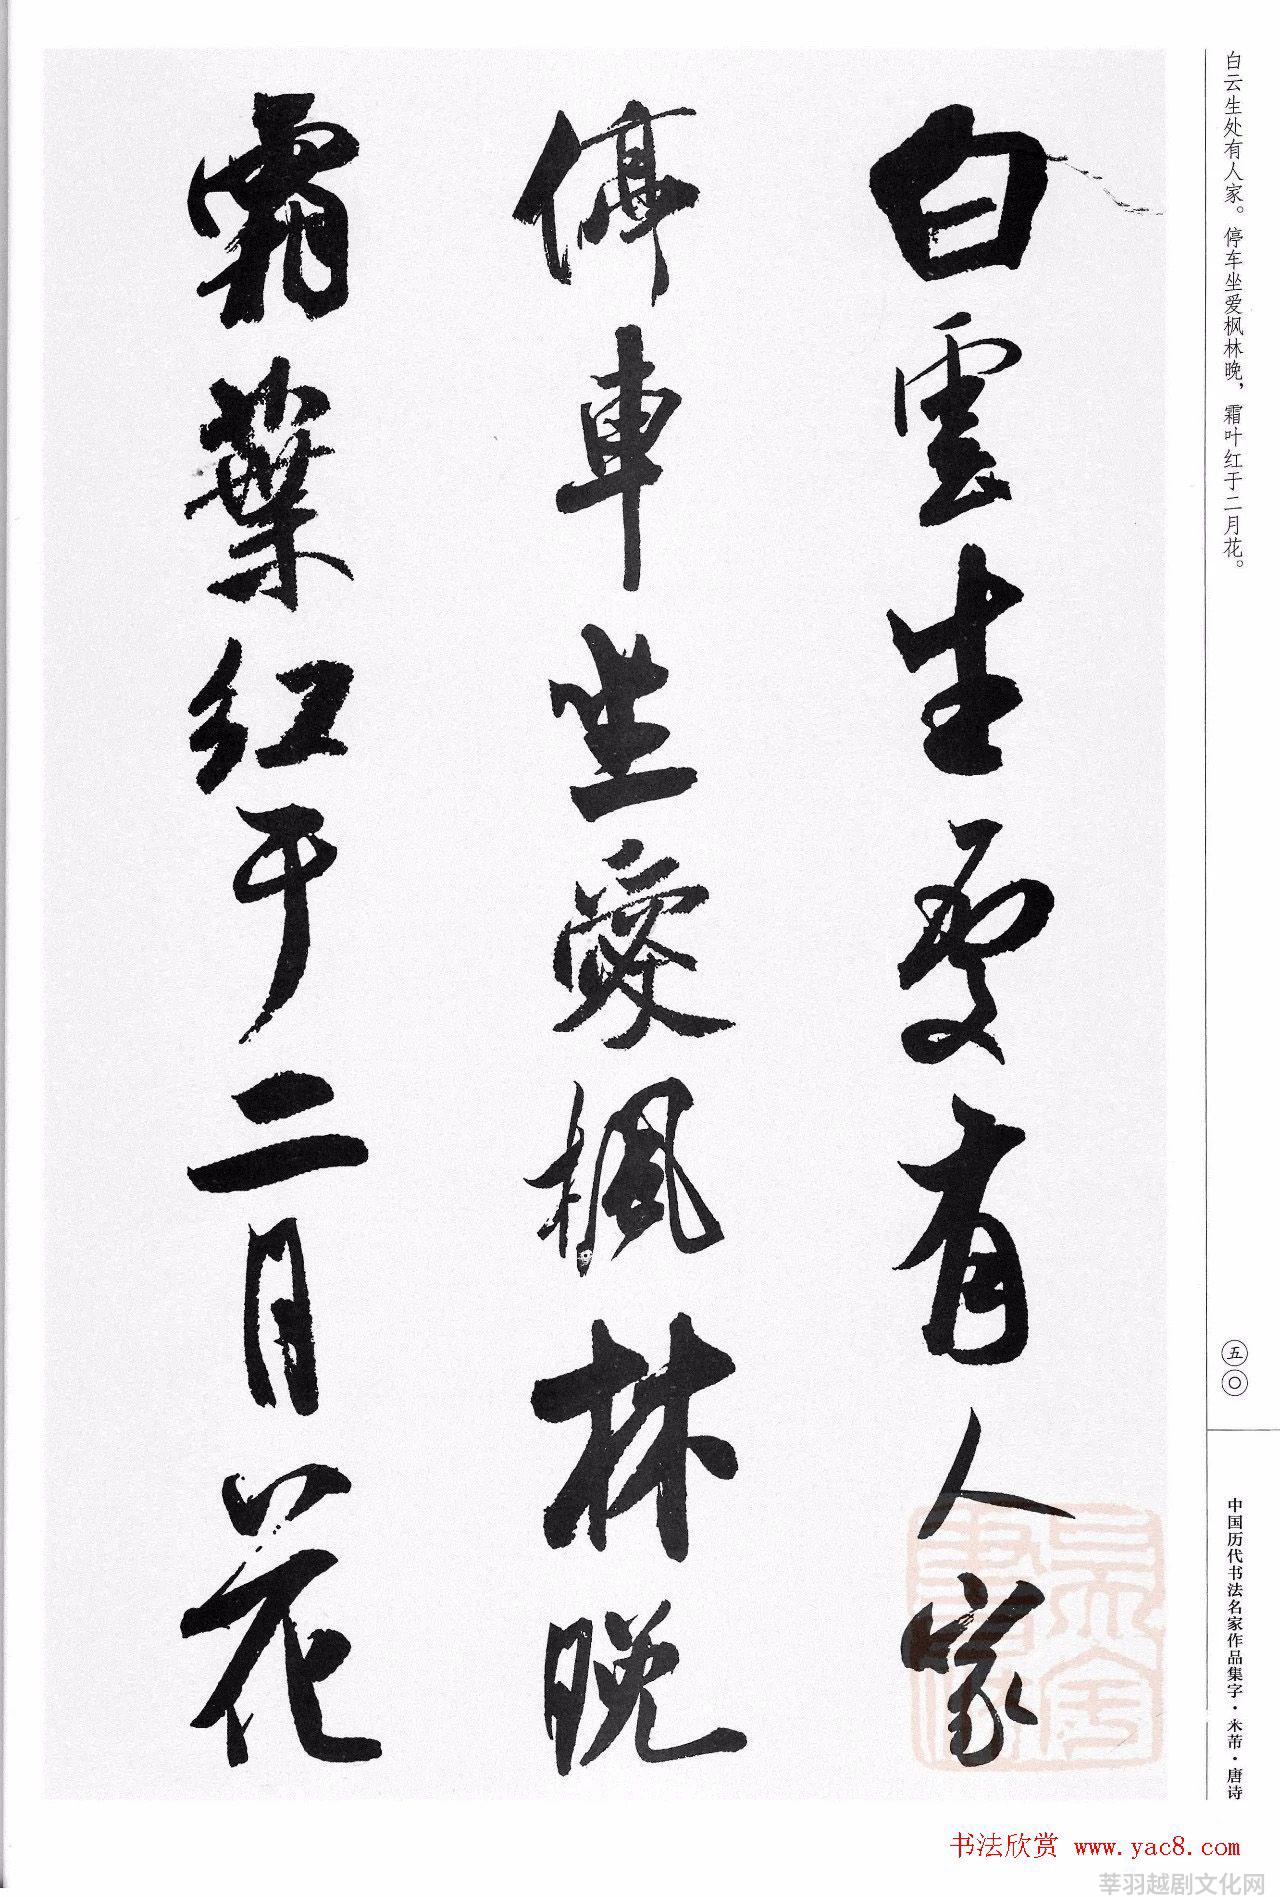 白云生处有人家。停车坐爱枫林晚，霜叶红于二月花。
白雲生處有人家
停車坐愛楓林晚
霜葉红于二月花
五〇
中国历代书法名家作品集字·米芾·唐诗
书法欣赏 www.yac8.com
莘羽越剧文化网